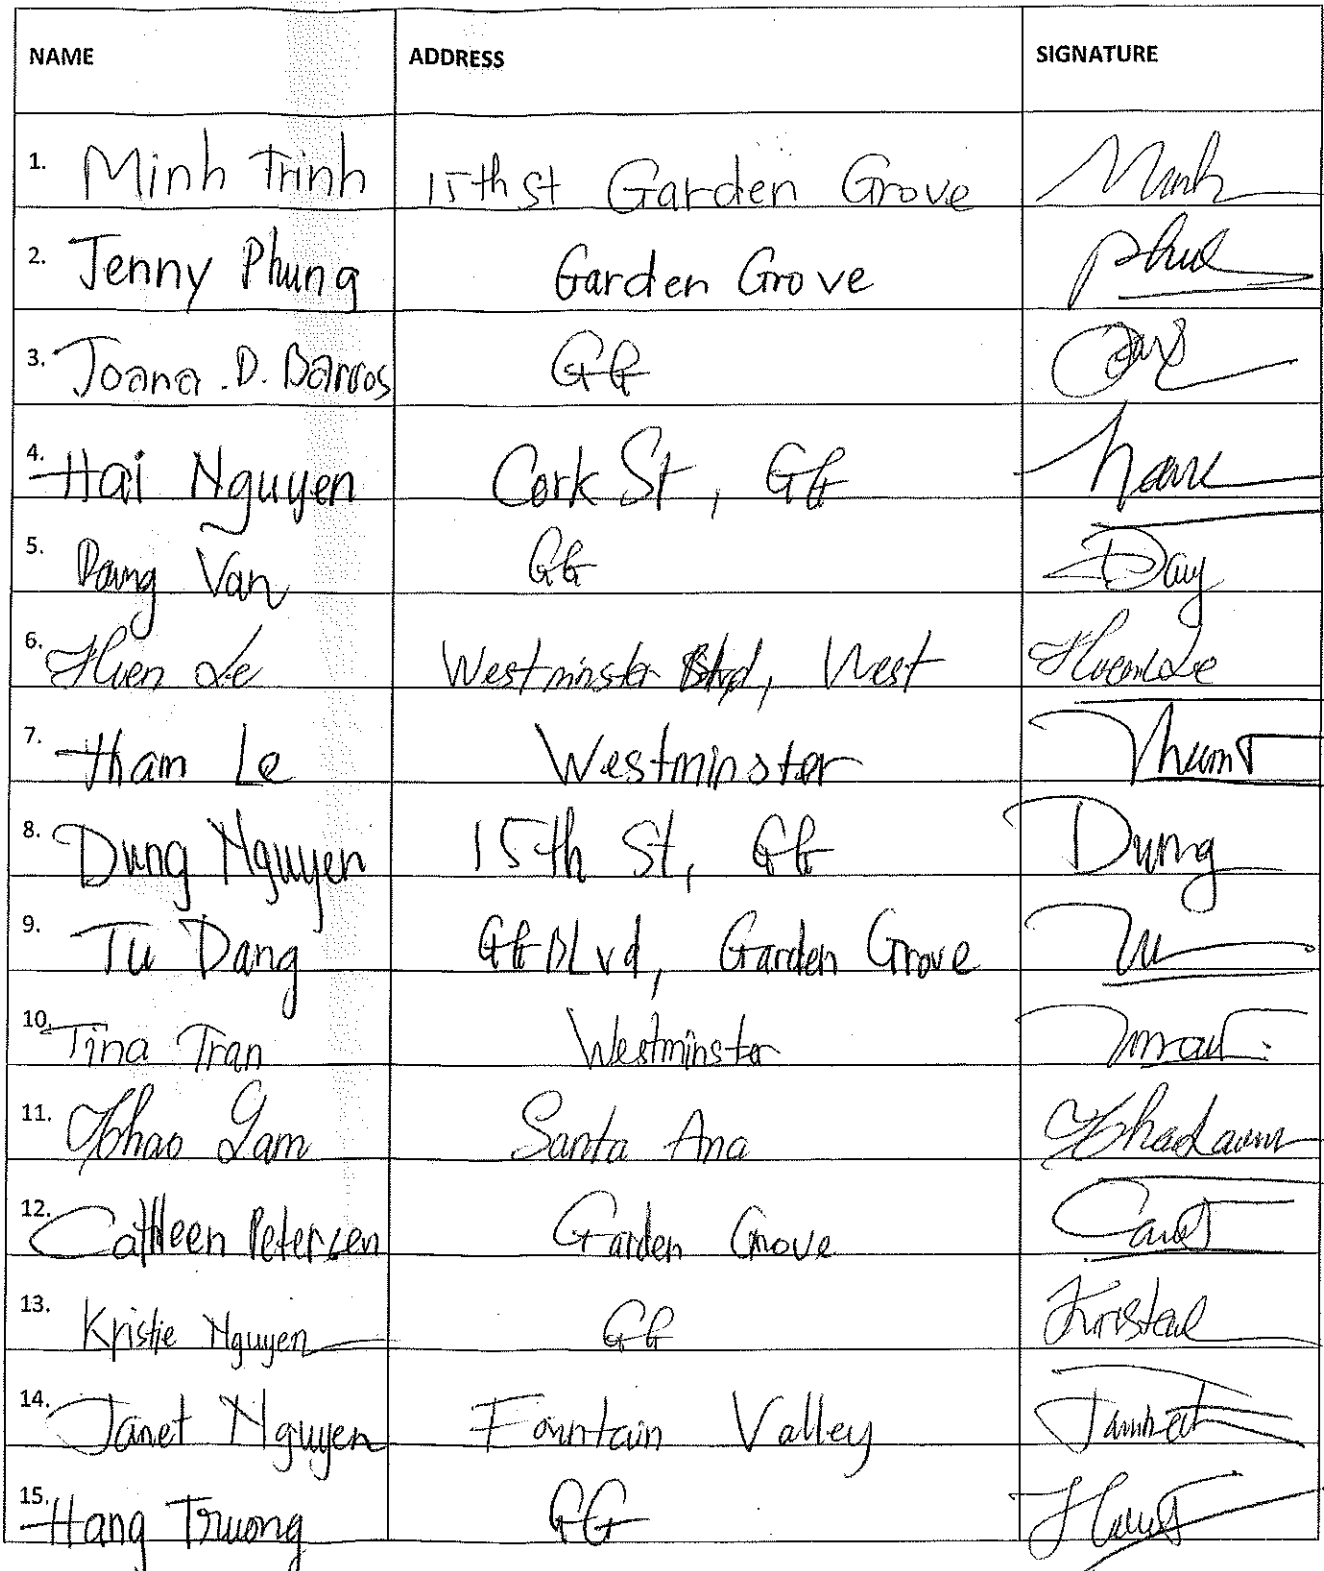 NAME ADDRESS SIGNATURE
1. Minh Trinh 15th St Garden Grove Minh
2. Jenny Phung Garden Grove
3. Joana .D. Barros GG
4. Hai Nguyen Cork St, GG
5. Van GG Day
6. Hien Le Westminster Blvd, West
7. Tham Le Westminster
8. Dung Nguyen 15th St, GG Dung
9. Tu Dang GG BLvd, Garden Grove Tu
10. Tina Tran Westminster
11. Khao Lam Santa Ana
12. Cathleen Petersen Garden Grove
13. Kristie Nguyen GG
14. Janet Nguyen Fountain Valley
15. Hang Truong GG